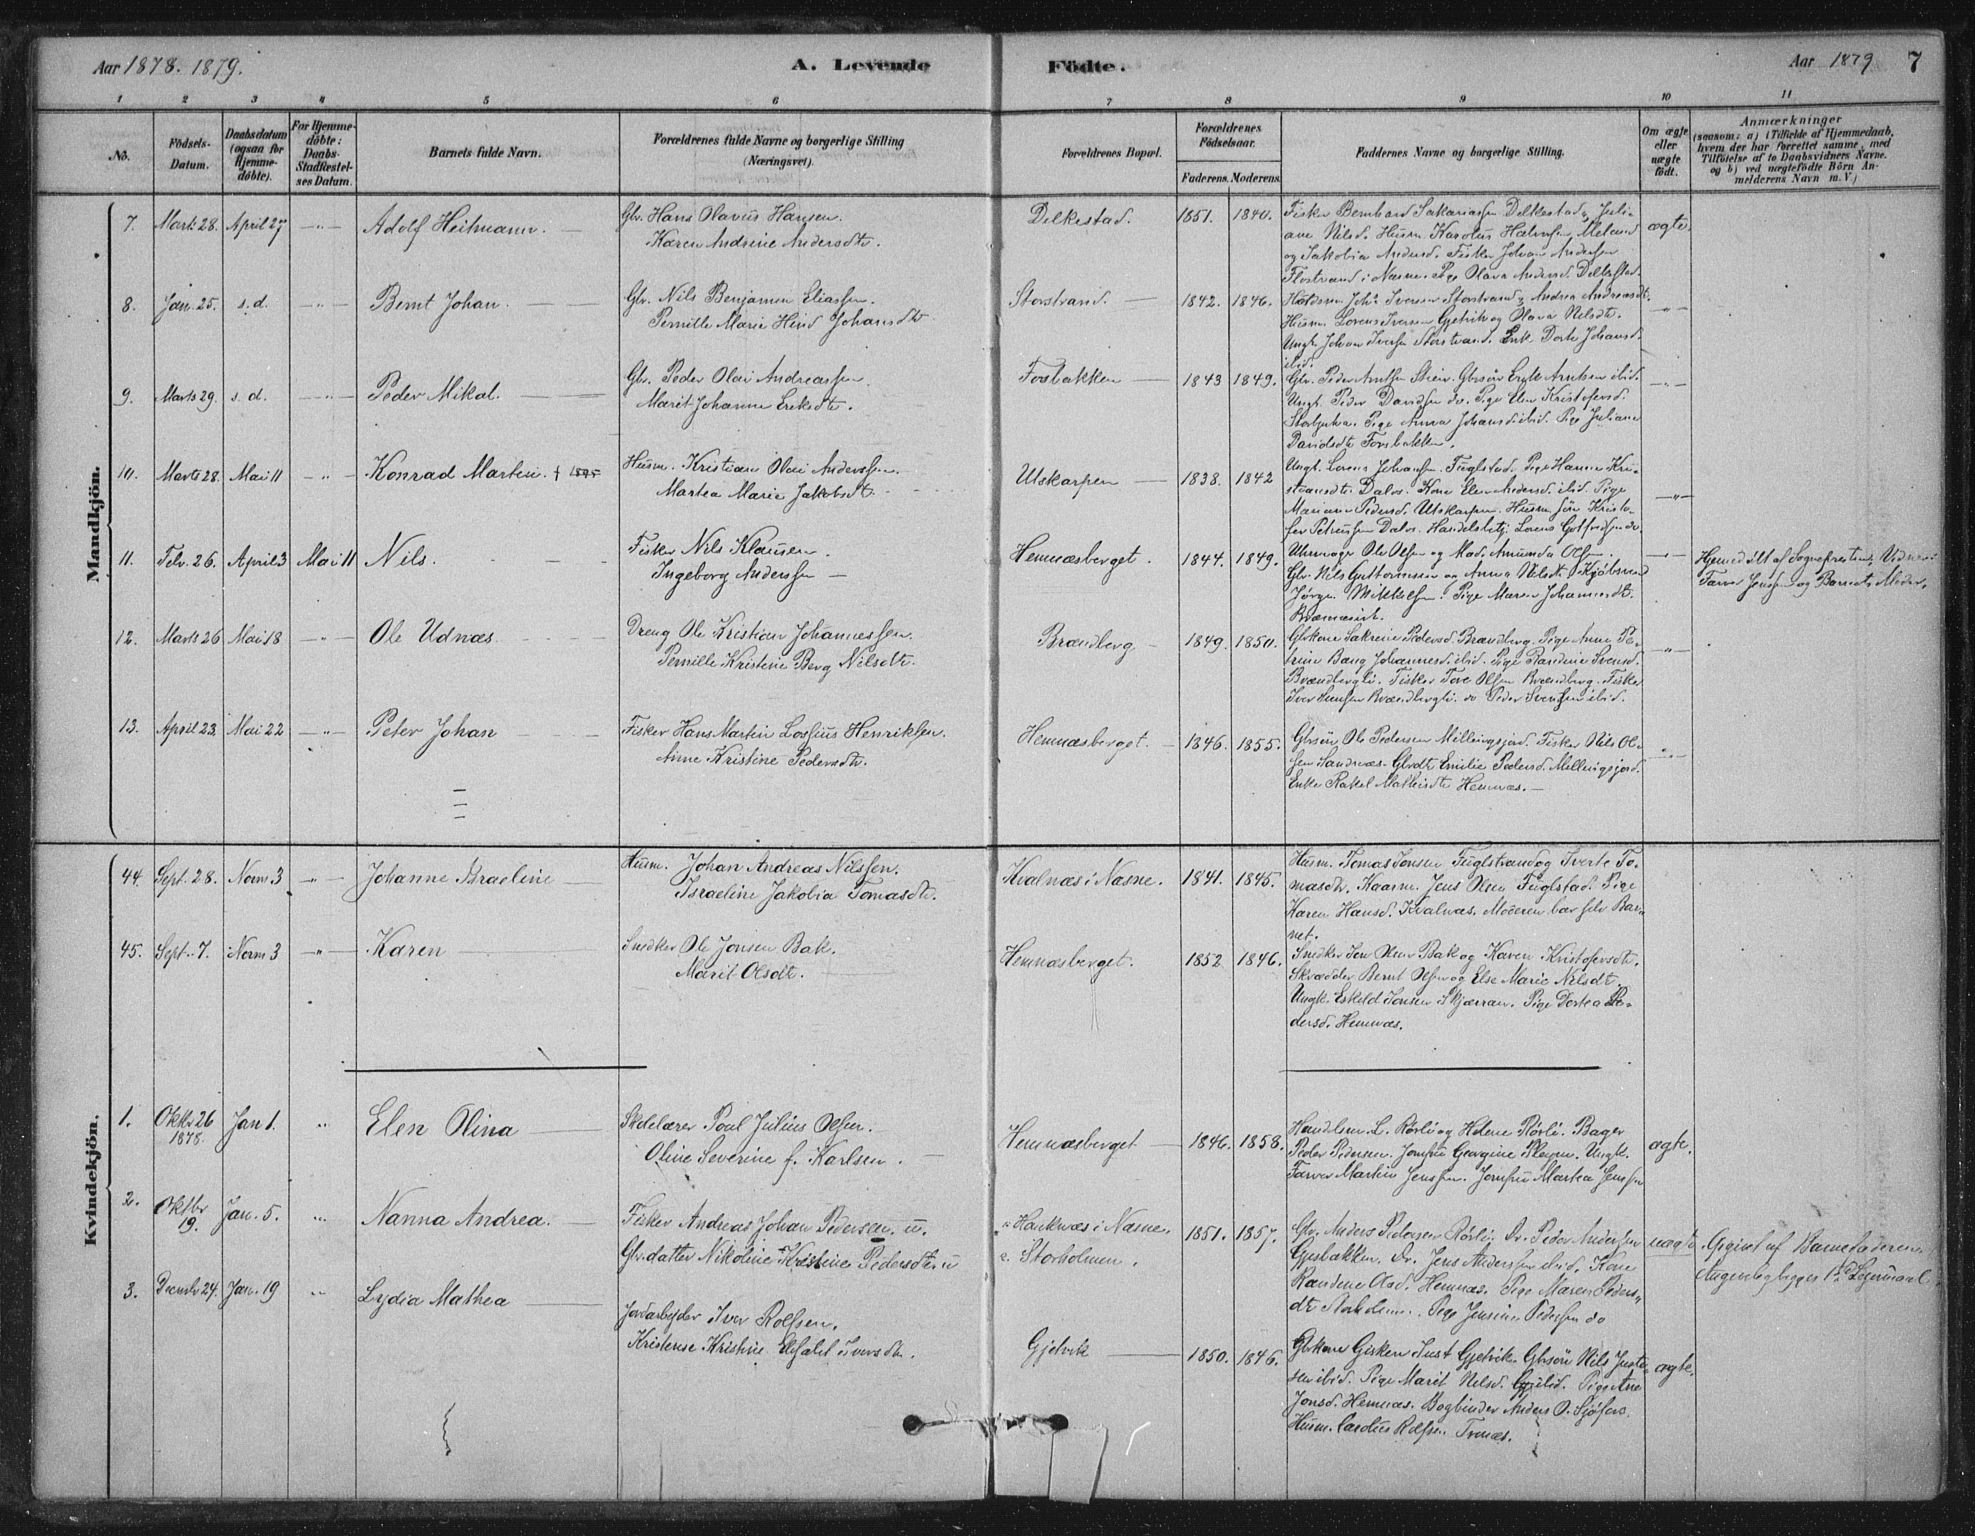 Aar 1878. 1879.
A. Levende
Födte.
Aar 1879
7
1 2 3 4 5 6 7 8 9 10 11
No.
Födsels-Datum.
Daabsdatum (ogsaa for Hjemme-döbte).
For Hjemme-döbte: Daabs-Stadfæstel-ses Datum.
Barnets fulde Navn.
Forældrenes fulde Navne og borgerlige Stilling (Næringsvei).
Forældrenes Bopæl.
Forældrenes Födselsaar.
Faderens. Moderens.
Faddernes Navne og borgerlige Stilling.
Om ægte eller uægte födt.
Anmærkninger
(saasom: a) i Tilfælde af Hjemmedaab,
hvem der har forrettet samme, med
Tilföielse af to Daabsvidners Navne.
og b) ved uægtefödte Börn An-
melderens Navn m. V.)
Mandkjön.
7. Marts 28. April 27 -"- Adolf Heitmann.
Gbr. Hans Olavus Hansen.
Karen Andrine Andersdtr.
Dilkestad. 1851. 1840.
Fisker Bernhard Sakariassen Dilkestad, Juli-
ane Nilsd. Husm. Karolus Meland
og Jakobia Andersd. Fisker Johan Andersen
Flostrand i Næsne. Pige Olava Andersd. Dilkestad.
ægte.
8. Jan. 25. s. d. -"- Bernt Johan.
Gbr. Nils Benjamin Eliassen.
Pernille Marie Hind Johansdtr.
Storstrand. 1842. 1846.
Iversen Storstrand, Andrea Andreasdt.
Husm. Lorens Iversen Gjetvik og Olava Nilsdt.
Ungk. Johan Iversen Storstrand. Enk. Dorte Johansd.
ibid.
-"-
9. Marts 29. s. d. -"- Peder Mikal.
Gbr. Peder Olai Andreassen.
Marit Johanna Eriksdtr.
Forsbakken 1843 1849.
Gbr. Peder Arntsen Stien. Gbrsön Eryk Arntsen ibid.
Ungk. Peder Davidsen do. Pige Elen Kristofersd.
Pige Anna Johansd. ibid. Pige Juliane
Davidsdtr Forsbakken.
-"-
10. Marts 28. Mai 11 -"- Konrad Marten. + 1895
Husm. Kristian Olai Anderssen.
Martea Marie Jakobsdt.
Utskarpen 1838. 1842
Ungk. Lorens Johansen Fuglstad. Pige Hanna Kri-
stiansdtr. Dalos. Kone Elen Andersd. ibid. Pige
Mariane Pedersd. Utskarpen. Husm. sön Kristo-
fer Petersen Dalos. Handelsbetj. Lorens Gotfredsen do.
-"-
11. Febr. 26. April 3 Mai 11 Nils.
Fisker Nils Klausen.
Ingeborg Anderssen
Hemnæsberget. 1844. 1849.
Uhrmager Ole Olsen og Mad. Amunda Olsen.
Gbr. Nils Guttormsen og Anna Nilsdt. Kjøbmand
Jørgen Mikkelsen. Pige Maren Johannesdt.
-"-
Hjemmedöbt af Sognepresten, Vidner:
Farver Jensen og Barnets Moder.
12. Marts 26 Mai 18 -"- Ole Udnæs.
Dreng Ole Kristian Johannessen.
Pernille Kristine Berg Nilsdtr.
Brændberg 1849. 1850.
Gbrkone Sakrine Pedersd. Brændberg. Pige Anne Pe-
trine Bang Johannesd. ibid. Pige Randine Svensd.
Brændbergli. Fisker Tove Olsen Brændberg. Fisker
Iver Svensen Brændbergli. do Peder Svensen ibid.
-"-
13. April 23. Mai 22 -"- Peter Johan
Fisker Hans Martin Lossius Henriksen.
Anne Kristine Pedersdtr.
Hemnæsberget. 1846. 1855.
Gbrsön Ole Pedersen Millingsjord. Fisker Nils Ol-
sen Sandnæs. Gbrdt. Emilie Pedersd. Millingsjord.
Enke Rakel Mathisdtr Hemnæs.
-"-
Kvindekjön.
44. Sept. 28. Novm. 3 -"- Johanne Israeline
Husm. Johan Andreas Nilssen.
Israeline Jakobia Tomasdtr.
Kvalnæs i Næsne. 1841. 1845.
Husm. Tomas Jonsen Fuglstrand og Sverte To-
masdtr. Kaarm. Jens Olsen Fuglstad. Pige
Karen Hansd. Kvalnæs. Moderen bar selv Bar-
net.
45. Sept. 7. Novm 3 -"- Karen
Snedker Ole Jonsen Bak.
Marit Olsdt.
Hemnæsberget. 1852 1846.
Snedker Jon Olsen Bak og Karen Kristofersdtr.
Skrædder Bernt Olsen og Else Marie Nilsdt.
Ungk. Eskild Jonsen Skjærran. Pige Dortea Pe-
dersd. Hemnæs.
1. Oktbr 26 1878. Jan 1. " Elen Olina
Skolelærer Poul Julius Olsen.
Oline Severine f. Karlsen.
Hemnæsberget 1846. 1858.
Handlsm. L. Rörli og Helene Rörli. Bager
Peder Pedersen. Jomfru Georgine Ungk.
Farver Martin Jenssen. Jomfru Martea Jenssen
ægte.
2. Oktbr 19. Jan. 5. " Nanna Andrea.
Fisker Andreas Johan Pedersen. u.
Gbrdatter Nikoline Kristine Pedersdtr. u
Hauknæs i Næsne.
Storholmen. 1851. 1857.
Gbr. Anders Pedersen Rörli. Dr. Peder Andersen
Gjesbakken. Dr. Jens Anderssen ibid. Kone
Randine Olsd. Hemnæs. Pige Maren Peders-
dtr Storholmen. Pige Jensine Pedersen do
uægte
Opgivet af Barnefaderen.
Angivelig begges 1ste Leiermaal.
3. Decembr 24. Jan. 19 " Lydia Mathea
Jordarbejder Iver Rolfsen.
Kristense Kristine Elisabet Iversdtr.
Gjetvik 1850. 1846.
Gbrkone Gisken Just Gjetvik. Gbrsön Nils Juste-
sen ibid. Pige Marit Nilsd. ibid. Pige Ane
Jonsd. Hemnæs. Bogbinder Anders O. Sjöfors.
Husm. Cardius Rolfsen Tvenæs.
ægte.